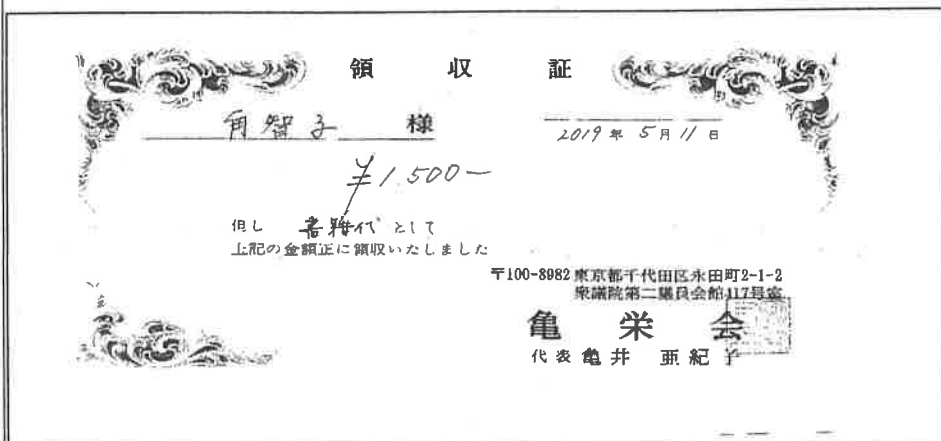 領 収 証
角智子 様
2019年 5月 11日
¥1,500-
但し 書籍代 として
上記の金額正に領収いたしました
〒100-8982 東京都千代田区永田町2-1-2
衆議院第二議員会館417号室
亀 栄 会
代表 亀井 亜紀子